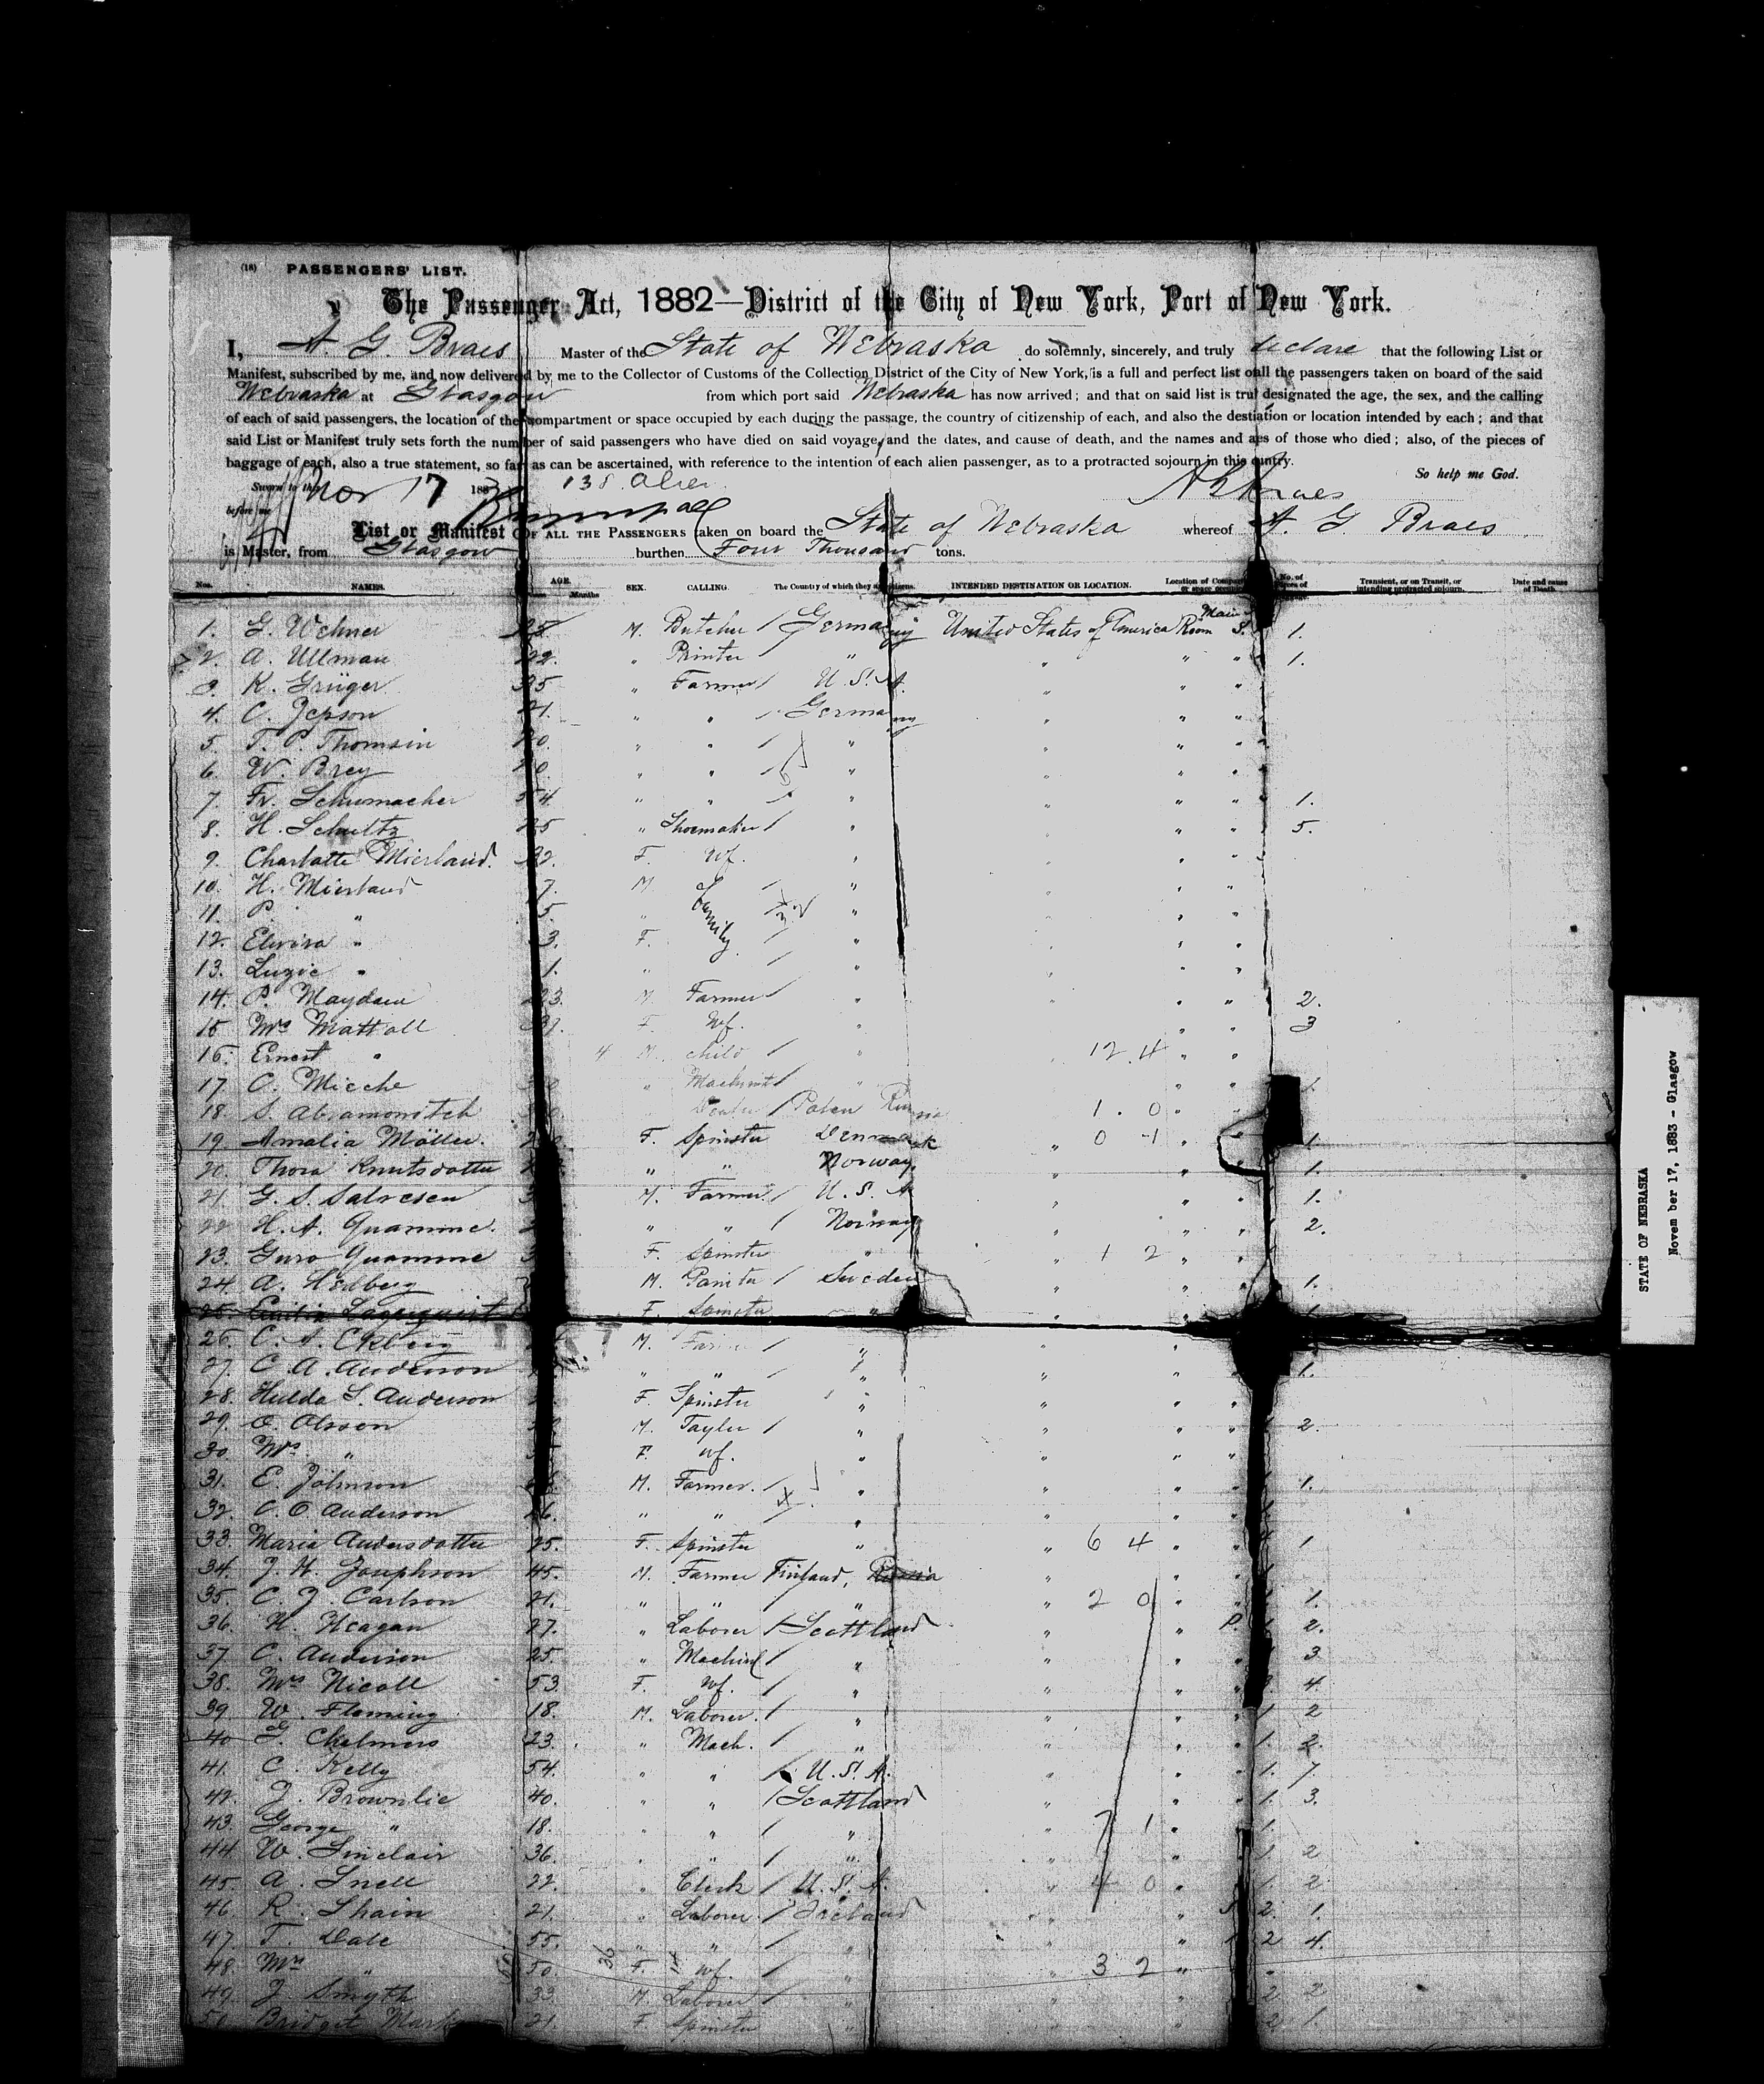 (18) PASSENGERS' LIST.
The Passenger Act, 1882—District of the City of New York, Port of New York.
I, A. G. Braes Master of the State of Nebraska do solemnly, sincerely, and truly declare that the following List or
Manifest, subscribed by me, and now delivered by me to the Collector of Customs of the Collection District of the City of New York, is a full and perfect list of all the passengers taken on board of the said
Nebraska at Glasgow from which port said Nebraska has now arrived; and that on said list is truly designated the age, the sex, and the calling
of each of said passengers, the location of the compartment or space occupied by each during the passage, the country of citizenship of each, and also the destiation or location intended by each; and that
said List or Manifest truly sets forth the number of said passengers who have died on said voyage, and the dates, and cause of death, and the names and ages of those who died; also, of the pieces of
baggage of each, also a true statement, so far as can be ascertained, with reference to the intention of each alien passenger, as to a protracted sojourn in this country. So help me God.
Sworn to this Nov 17 1883 138 A G Braes
before me
List or Manifest OF ALL THE PASSENGERS taken on board the State of Nebraska whereof A. G. Braes
is Master, from Glasgow burthen Four Thousand tons.
Nos. NAMES. AGE. Months SEX. CALLING. The Country of which they are citizens. INTENDED DESTINATION OR LOCATION. Location of Compartment or space occupied No. of Pieces of Transient, or on Transit, or intending protracted sojourn. Date and cause of Death.
1. G. Wehner M. Butcher / Germany United States of America Main Room S. 1.
2. A. Ullman 22. " Printer " " " " 1.
3. K. Grüger " Farmer / U.S.A. " " "
4. C. Jepson 21. " " / Germany " " "
5. T. P. Thomsin " " / " " " "
6. W. Brey " " / " " " "
7. Fr. Schumacher 54. " " / " " " " 1.
8. H. Schultz " Shoemaker / " " " " 5.
9. Charlotte Mierland. 32. F. Wf. " " " "
10. H. Mierland 7. M. Family / " " " "
11. P. " 5. " " " " "
12. Elvira " 3. F. / " " " "
13. Luzie " 1. " / " " " "
14. P. Maydam 23. M. Farmer / " " " " 2.
15. Mrs Mattall F. Wf. " " " 3
16. Ernest " 4 M. child / " " 12.4 " "
17. C. Micche " Machinist / " " " 1.
18. S. Abramowitch / Polen Russia 1.0 "
19. Amalia Möller. F. Spinster Denmark " 0 1 " " 1.
20. Thora Knutsdotter " " Norway. " " " 1.
21. G. S. Salvesen M. Farmer / U.S.A " " " 1.
22. H. A. Quamme. " " / Norway " " " 2.
23. Guro Quamme F. Spinster " 1 2 " "
24. A. Hedberg M. / Sweden " " 1.
25. Lagerquist F. Spinster " " " "
26. C. A. Ekberg M. Farmer / " " "
27. C. A. Anderson " " / " " " " 1.
28. Hulda S. Anderson F. Spinster " " " "
29. O. Olsson M. Tayler / " " " " 2.
30. Mrs " F. Wf. " " " "
31. E. Johnson M. Farmer. / " " " " 1.
32. C. O. Anderson 26. " " " " " "
33. Maria Andersdotter 25. F. Spinster " " 6 4 " " 1
34. J. H. Josephson 45. M. Farmer Finland, Russia " " "
35. C. J. Carlson 21. " " " " 2 0 " " 1.
36. H. Heagan 27. " Laborer / Scottland " " P. 1. 2.
37. C. Anderson 25. " Machinst / " " " " 3.
38. Mrs Nicoll 53. F. Wf. / " " " " 4.
39. W. Fleming 18. M. Laborer. / " " " " 1. 2
40. G. Chalmers 23. " Mach. / " " " " 1. 2.
41. C. Kelly 54. " " / U.S.A. " " " 1. 7
42. J. Brownlie 40. " " / Scottland " " " 1. 3.
43. George " 18. " " / " 7 1 " " 1.
44. W. Sinclair 36. " " / " " " " 1. 2
45. A. Snell 22. " Clerk / U.S.A. " 4 0 " " 1. 2.
46. R. Shain 21. " Laborer. / Ireland " " 2. 1.
47. T. Dale 55. " " / " " " 2 4.
48. Mrs " 50. 36 F. Wf. / " " 3 2 "
49. J. Smyth 33. M. Laborer / " " " 2 2
50. Bridget 21. F. Spinster " " " 2 1.
STATE OF NEBRASKA
Novem ber 17, 1883 - Glasgow